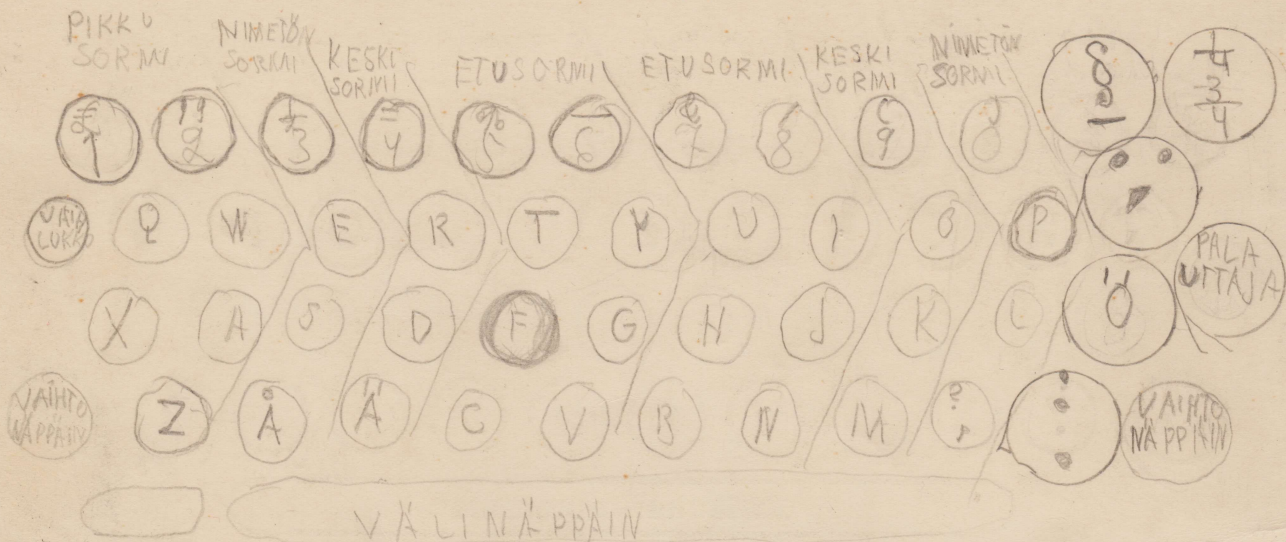 PIKKU SORMI NIMETÖN SORMI KESKI SORMI ETUSORMI ETUSORMI KESKI SORMI NIMETÖN SORMI
1 " 2 3 = 4 % 5 — 6 & 7 8 ( 9 ) 0 § ¼ ¾
VAIH LUKKO Q W E R T Y U I O P
X A S D F G H J K L Ö PALA UTTAJA
VAIHTO NÄPPÄIN Z Å Ä C V B N M ? , . : VAIHTO NÄPPÄIN
VÄLINÄPPÄIN